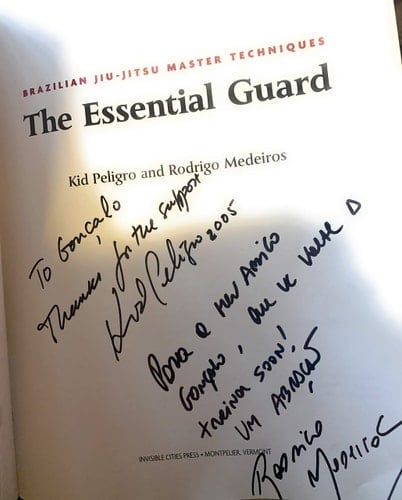 BRAZILIAN JIU-JITSU MASTER TECHNIQUES
The Essential Guard
Kid Peligro and Rodrigo Medeiros
To Gonçalo
Thanks for the support
Kid Peligro 2005
Para o meu Amigo
Gonçalo, que ve volte a
treinar soon!
Um ABRAÇO,
Rodrigo
Medeiros
INVISIBLE CITIES PRESS • MONTPELIER, VERMONT